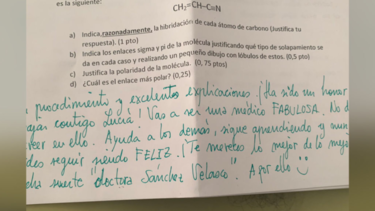 es la siguiente:
CH₂=CH–C≡N
a) Indica razonadamente, la hibridación de cada átomo de carbono (Justifica tu
respuesta). (1 pto)
b) Indica los enlaces sigma y pi de la molécula justificando qué tipo de solapamiento se
da en cada caso y realizando un pequeño dibujo con lóbulos de estos. (0,5 pto)
c) Justifica la polaridad de la molécula. (0, 75 ptos)
d) ¿Cuál es el enlace más polar? (0,25)
procedimiento y excelentes explicaciones. ¡Ha sido un honor
contigo Lucía! Vas a ser una médico FABULOSA. No d
en ello. Ayuda a los demás, sigue aprendiendo y nun
seguir siendo FELIZ. ¡Te mereces lo mejor de lo mejor
suerte "doctora Sánchez Velasco". A por ello